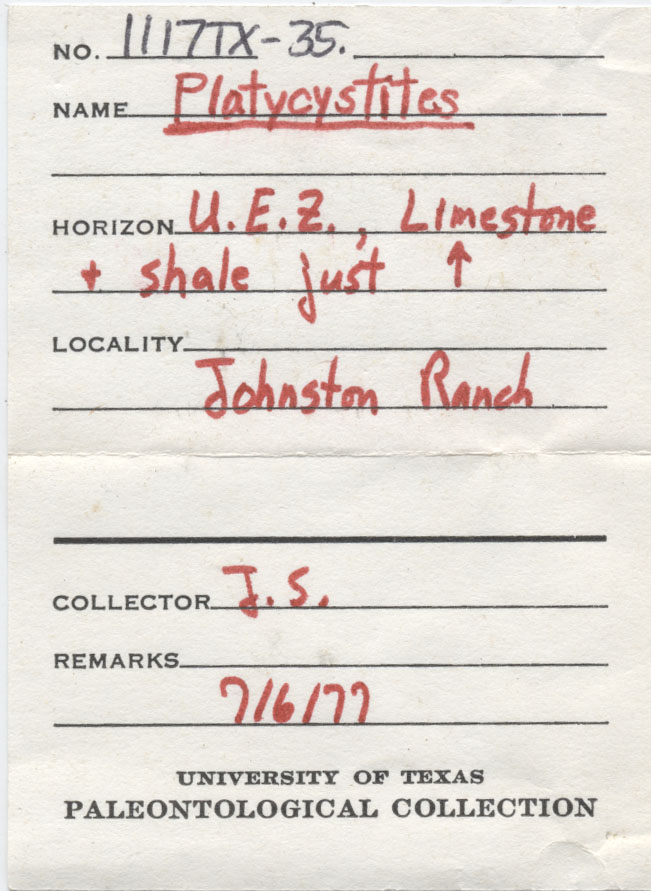 NO. 1117TX-35.
NAME Platycystites
HORIZON U.E.Z., Limestone
+ shale just ↑
LOCALITY
Johnston Ranch
COLLECTOR J.S.
REMARKS
7/6/77
UNIVERSITY OF TEXAS
PALEONTOLOGICAL COLLECTION